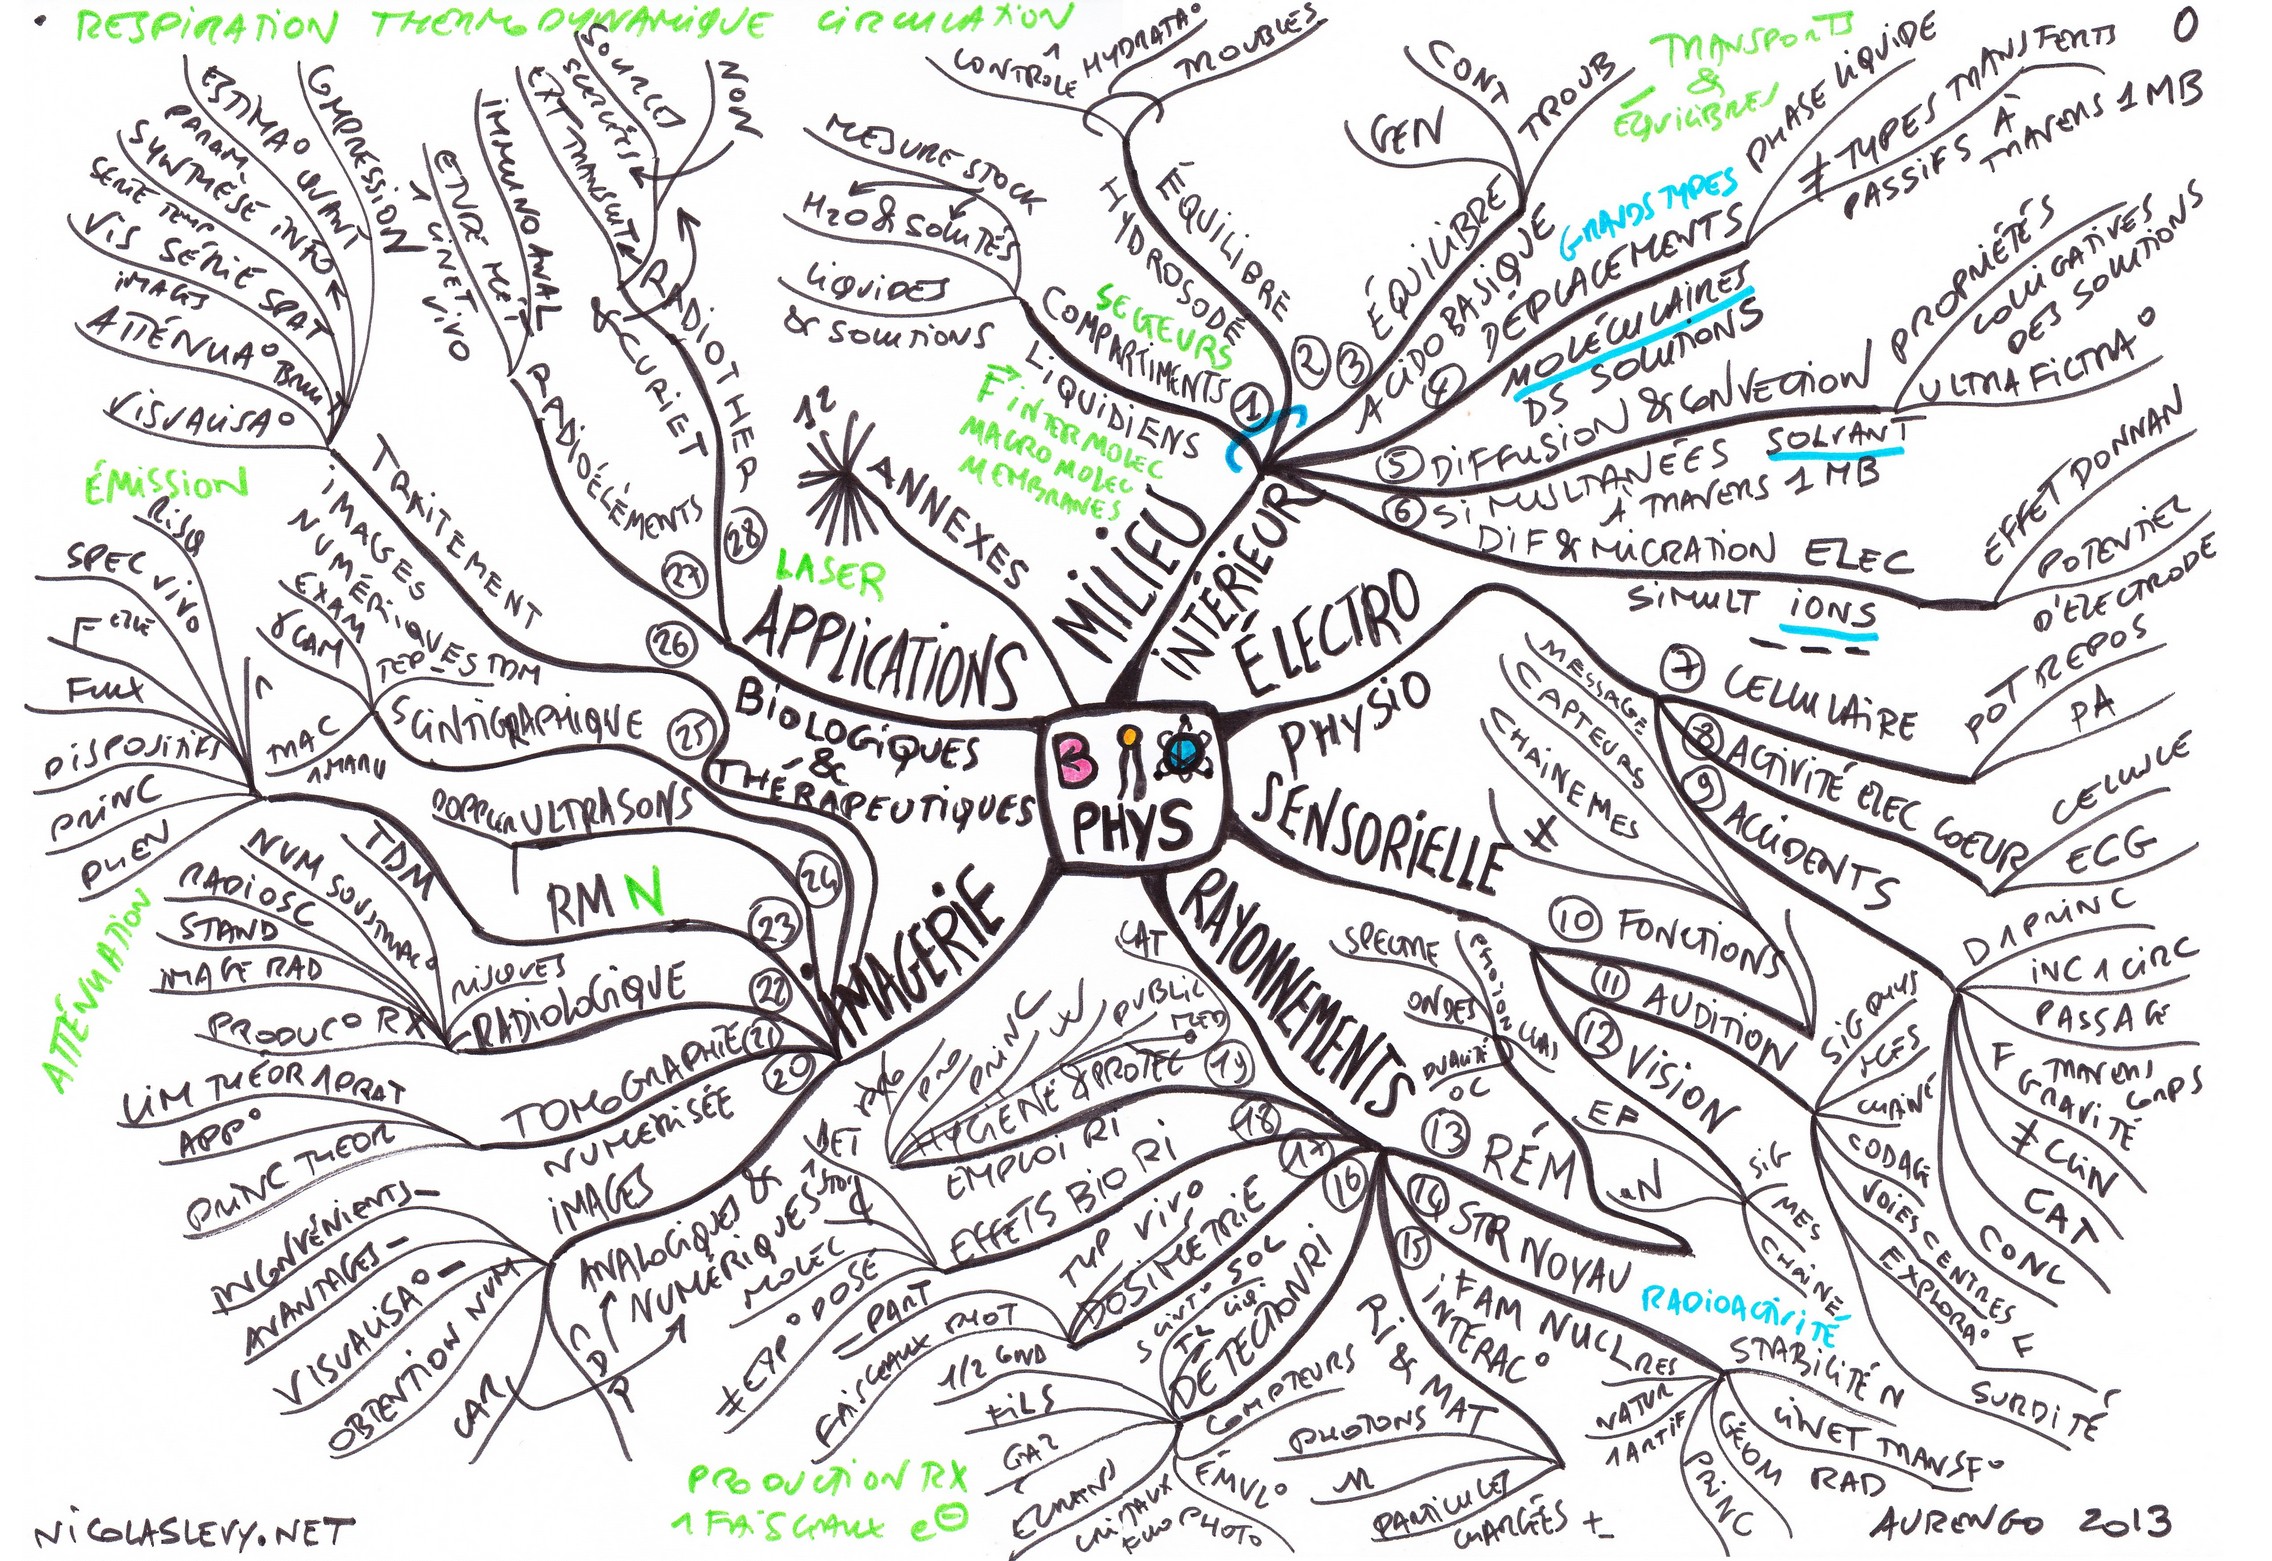 RESPIRATION THERMODYNAMIQUE CIRCULATION
TRANSPORTS
&
ÉQUILIBRES
0
BIO
PHYS
MILIEU
INTÉRIEUR
1
SECTEURS
COMPARTIMENTS
LIQUIDIENS
MESURE STOCK
H2O & SOLUTÉS
LIQUIDES
& SOLUTIONS
F INTERMOLEC
MACROMOLEC
MEMBRANES
2
ÉQUILIBRE
HYDROSODÉ
CONTRÔLE
HYDRATA°
TROUBLES
3
ÉQUILIBRE
ACIDOBASIQUE
GEN
CONT
TROUB
4
GRANDS TYPES
DÉPLACEMENTS
MOLÉCULAIRES
DS SOLUTIONS
PHASE LIQUIDE
≠ TYPES TRANSFERTS
PASSIFS À
TRAVERS 1 MB
5
DIFFUSION & CONVECTION
SIMULTANÉES SOLVANT
À TRAVERS 1 MB
PROPRIÉTÉS
COLLIGATIVES
DES SOLUTIONS
ULTRAFILTRA°
6
DIF & MIGRATION ELEC
SIMULT IONS
EFFET DONNAN
POTENTIEL
D'ELECTRODE
ÉLECTRO
PHYSIO
7
CELLULAIRE
POT REPOS
PA
8
ACTIVITÉ ELEC COEUR
CELLULE
ECG
9
ACCIDENTS
D 1 PRINC
INC 1 CIRC
PASSAGE
F TRAVERS CORPS
GRAVITÉ
≠ CLIN
CAT
CONC
SENSORIELLE
10
FONCTIONS
MESSAGE
CAPTEURS
CHAINE MES
≠
11
AUDITION
SIG PHYS
MES
CHAINE
CODAGE
VOIES CENTRES
EXPLORA° F
SURDITÉ
12
VISION
SIG
MES
CHAINE
RAYONNEMENTS
13
RÉM
SPECTRE
ONDES
PHOTON
CLAS
DUALITÉ
OC
EP
14
STR NOYAU
15
FAM NUCL RES
RADIOACTIVITÉ
STABILITÉ N
CINET TRANSF°
RAD
GÉOM
PRINC
NATUR
1 ARTIF
INTERAC°
RI & MAT
PHOTONS
N
PARTICULES
CHARGÉES ±
16
DÉTECTION RI
SCINT° SOL
COMPTEURS
ÉMUL°
PHOTO
CRISTAUX
ECRANS
GAZ
FILS
1/2 COND
17
DOSIMÉTRIE
TYP VIVO
FAISCEAUX PHOT
PART
18
EFFETS BIO RI
≠ EXP° DOSE
MOLÉC
19
EMPLOI RI
HYGIÈNE & PROTEC°
PRINC
PUBLIC
MED
CAT
IMAGERIE
20
IMAGES
ANALOGIQUES &
NUMÉRIQUES
INCONVÉNIENTS
AVANTAGES
VISUALISA°
OBTENTION NUM
CAR
21
TOMOGRAPHIE
NUMERISÉE
LIM THÉOR 1 PRAT
APP°
PRINC THEOR
22
RADIOLOGIQUE
RISQUES
TDM
NUM SOUSTRAC°
RADIOSC
STAND
IMAGE RAD
PRODUC° RX
ATTÉNUATION
23
RMN
ÉMISSION
RISQ
SPEC VIVO
FLUX
DISPOSITIFS
PRINC
PHEN
24
ULTRASONS
DOPPLER
25
SCINTIGRAPHIQUE
TEP TDM
EXAM
γ CAM
MAC
26
TRAITEMENT
IMAGES
NUMÉRIQUES
COMPRESSION
ESTIMA° QUANT
PARAM
SYNTHÈSE INFO
SERIE TEMP
VIS SÉRIE SPAT
IMAGES
ATTÉNUA° BRUIT
VISUALISA°
APPLICATIONS
BIOLOGIQUES
&
THÉRAPEUTIQUES
27
RADIOÉLÉMENTS
ETUDE
1 CINET
VIVO
IMMUNOANAL
28
RADIOTHER
& CURIET
EXT TRANSCUT
SOURCES
SCELLÉES
NON
LASER
ANNEXES
12
PRODUCTION RX
1 FAISCEAUX e⊖
NICOLASLEVY.NET
AURENGO 2013